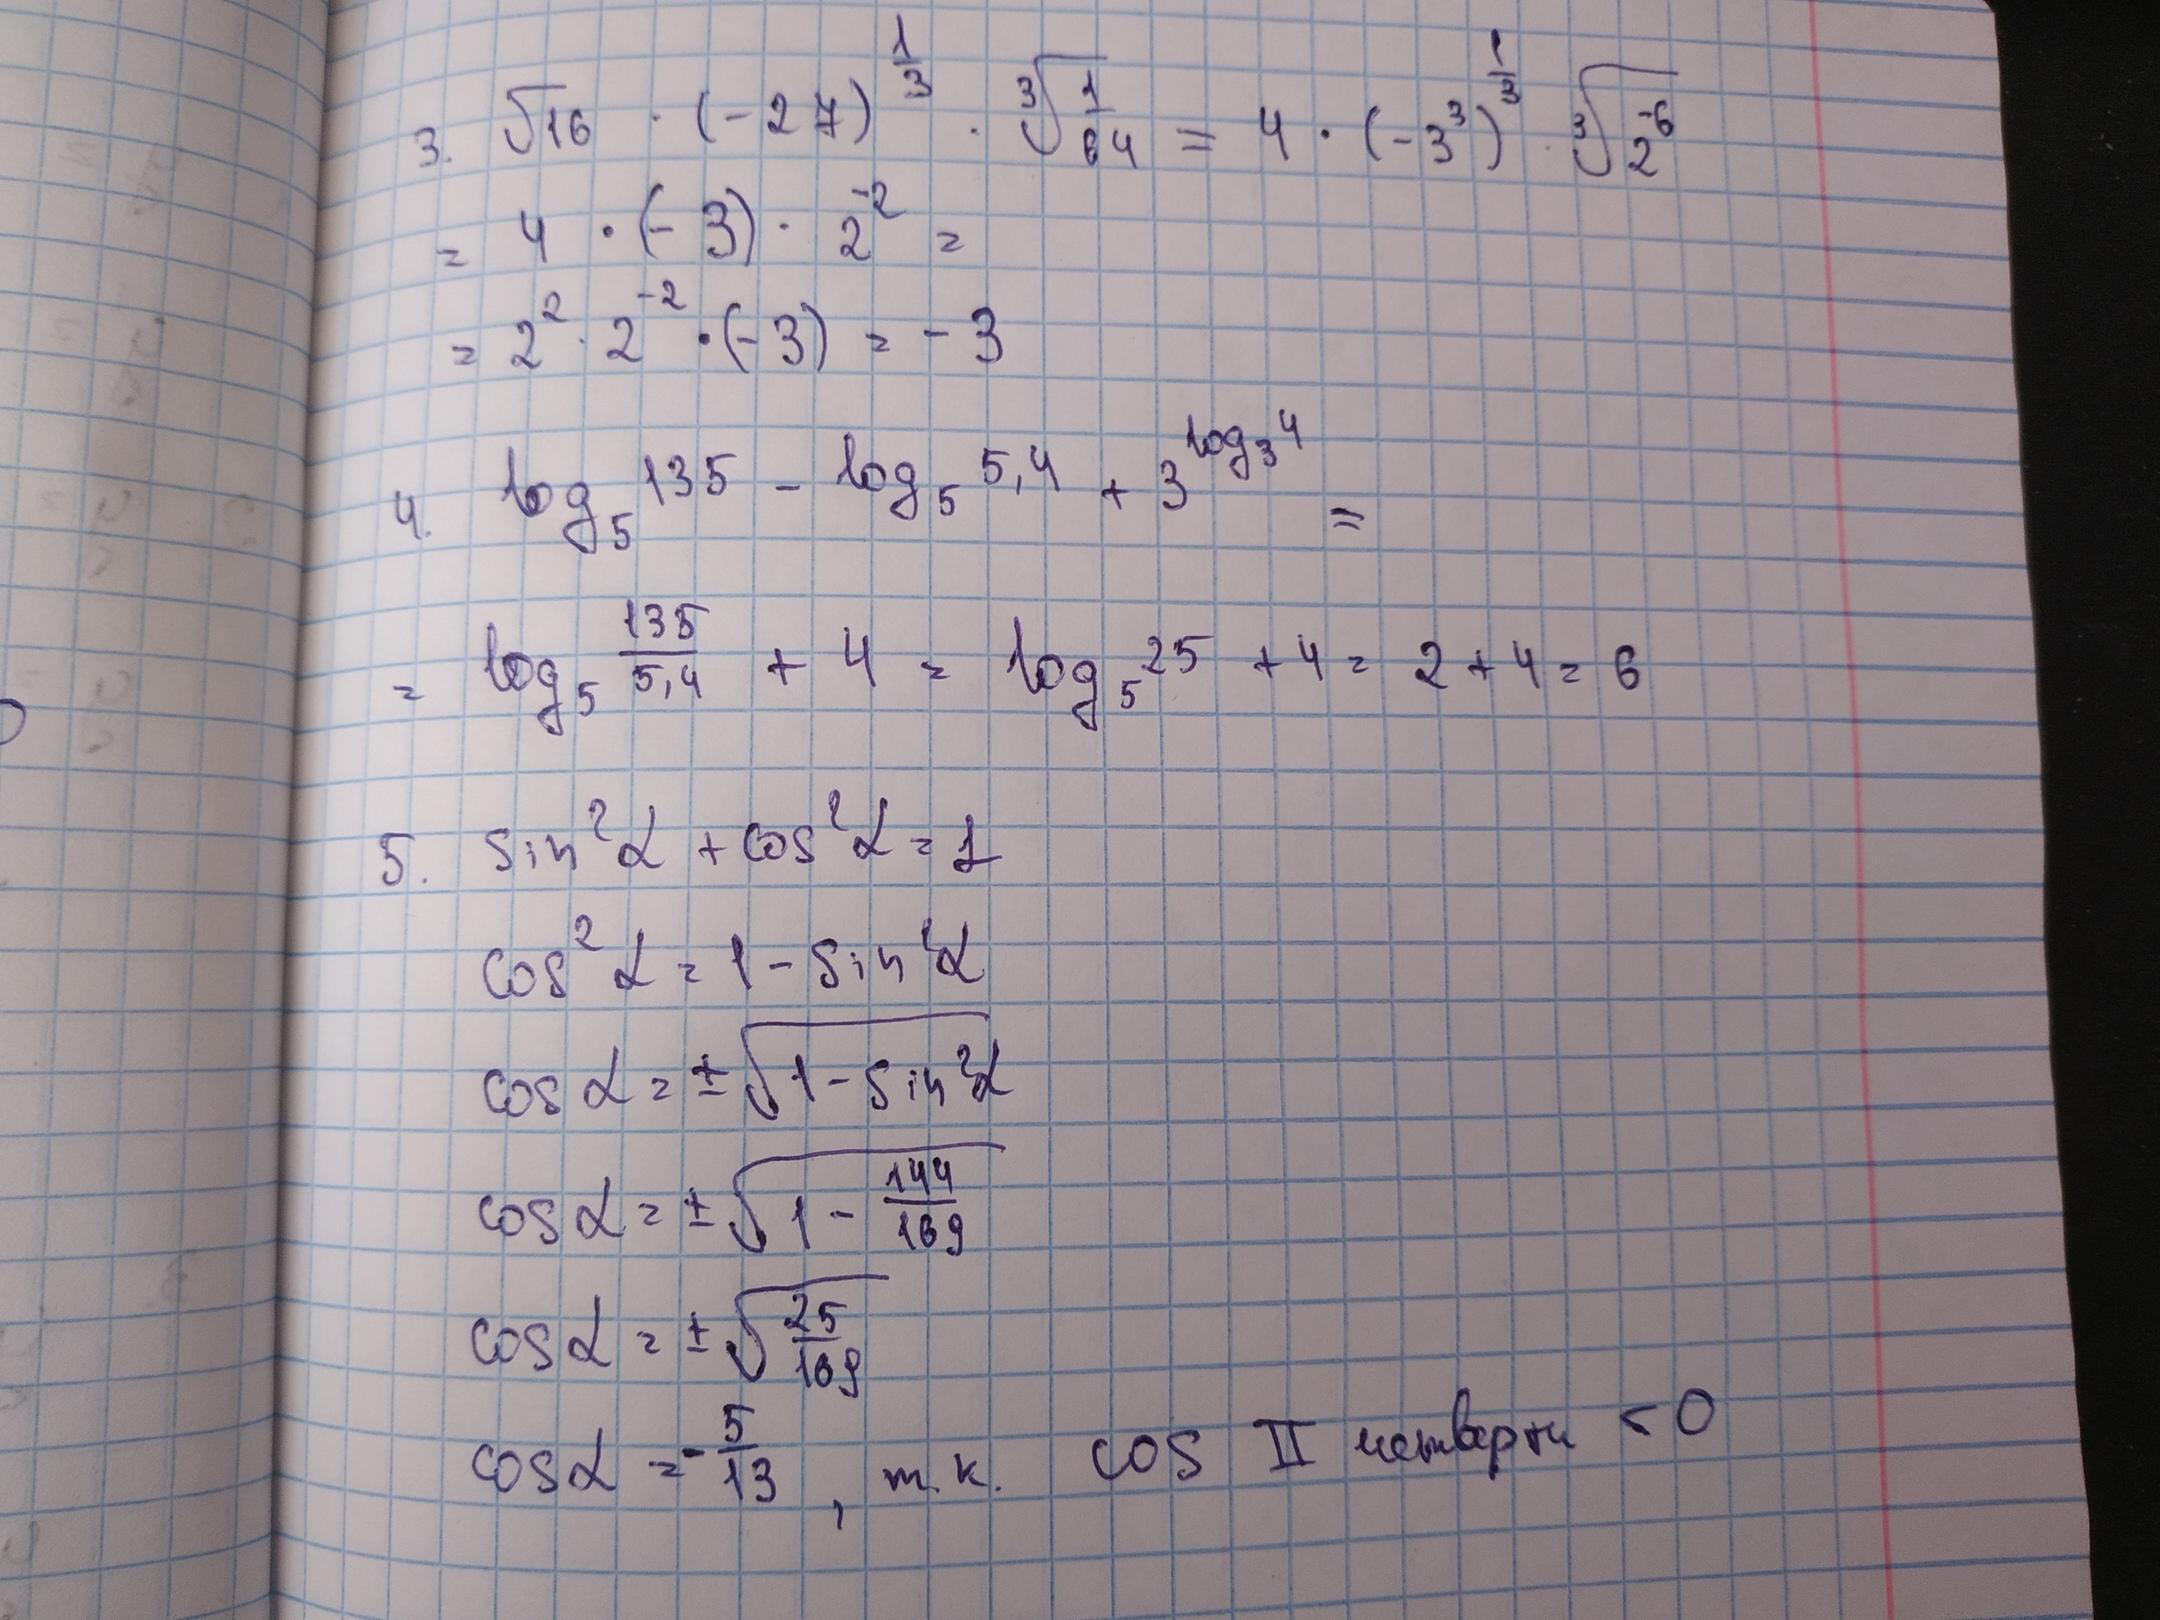 3. √16 · (-27)^(1/3) · ∛(1/64) = 4 · (-3³)^(1/3) · ∛(2⁻⁶)
= 4 · (-3) · 2⁻² =
= 2² · 2⁻² · (-3) = -3
4. log₅ 135 - log₅ 5,4 + 3^(log₃ 4) =
= log₅ (135/5,4) + 4 = log₅ 25 + 4 = 2 + 4 = 6
5. sin²α + cos²α = 1
cos²α = 1 - sin²α
cos α = ±√(1 - sin²α)
cos α = ±√(1 - 144/169)
cos α = ±√(25/169)
cos α = -5/13, т.к. cos II четверти < 0